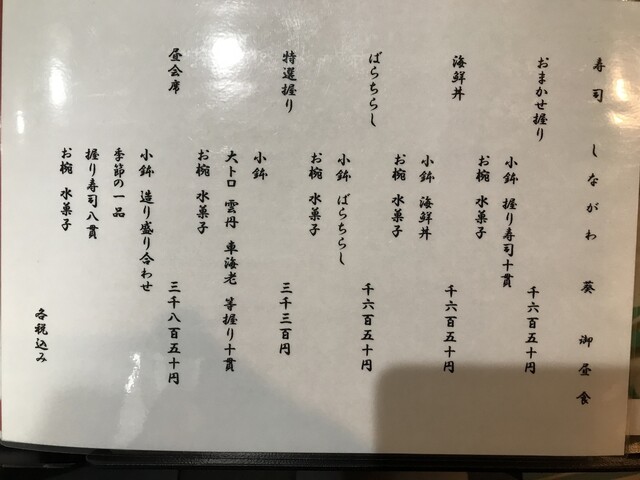 寿司 しながわ 葵 御昼食
おまかせ握り
小鉢 握り寿司十貫
お椀 水菓子
千六百五十円
海鮮丼
小鉢 海鮮丼
お椀 水菓子
千六百五十円
ばらちらし
小鉢 ばらちらし
お椀 水菓子
千六百五十円
特選握り
小鉢
大トロ 雲丹 車海老 等握り十貫
お椀 水菓子
三千三百円
昼会席
小鉢 造り盛り合わせ
季節の一品
握り寿司八貫
お椀 水菓子
三千八百五十円
各税込み